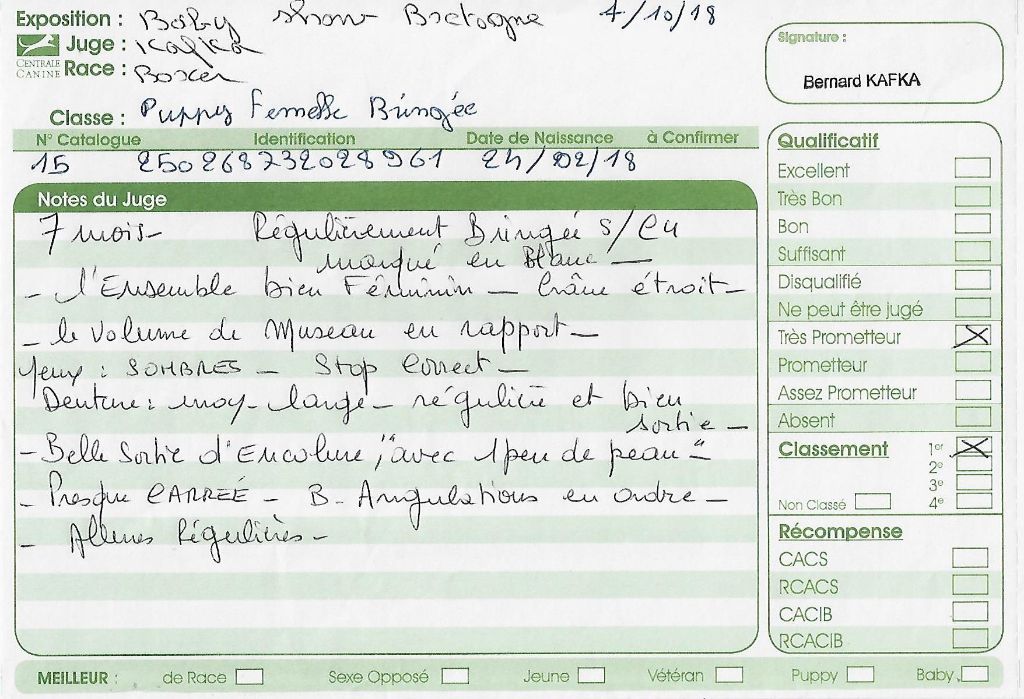 Exposition : Baby show Bretagne 7/10/18
Juge : Kafka
CENTRALE CANINE
Race : Boxer
Signature :
Bernard KAFKA
Classe : Puppy Femelle Bringée
N° Catalogue Identification Date de Naissance à Confirmer
15 250268732028961 24/02/18
Notes du Juge
7 mois- Régulièrement Bringée s/
marqué en Blanc —
- l'Ensemble bien Féminin — Crâne étroit-
- le volume de Museau en rapport-
Yeux : SOMBRES - Stop Correct -
Denture : moy- large- régulière et bien
sortie -
- Belle Sortie d'Encolure, "avec 1 peu de peau"
- Presque CARRÉE - B- Angulations en ordre -
- Allures Régulières -
Qualificatif
Excellent
Très Bon
Bon
Suffisant
Disqualifié
Ne peut être jugé
Très Prometteur X
Prometteur
Assez Prometteur
Absent
Classement 1er X
2e
3e
Non Classé 4e
Récompense
CACS
RCACS
CACIB
RCACIB
MEILLEUR : de Race Sexe Opposé Jeune Vétéran Puppy Baby